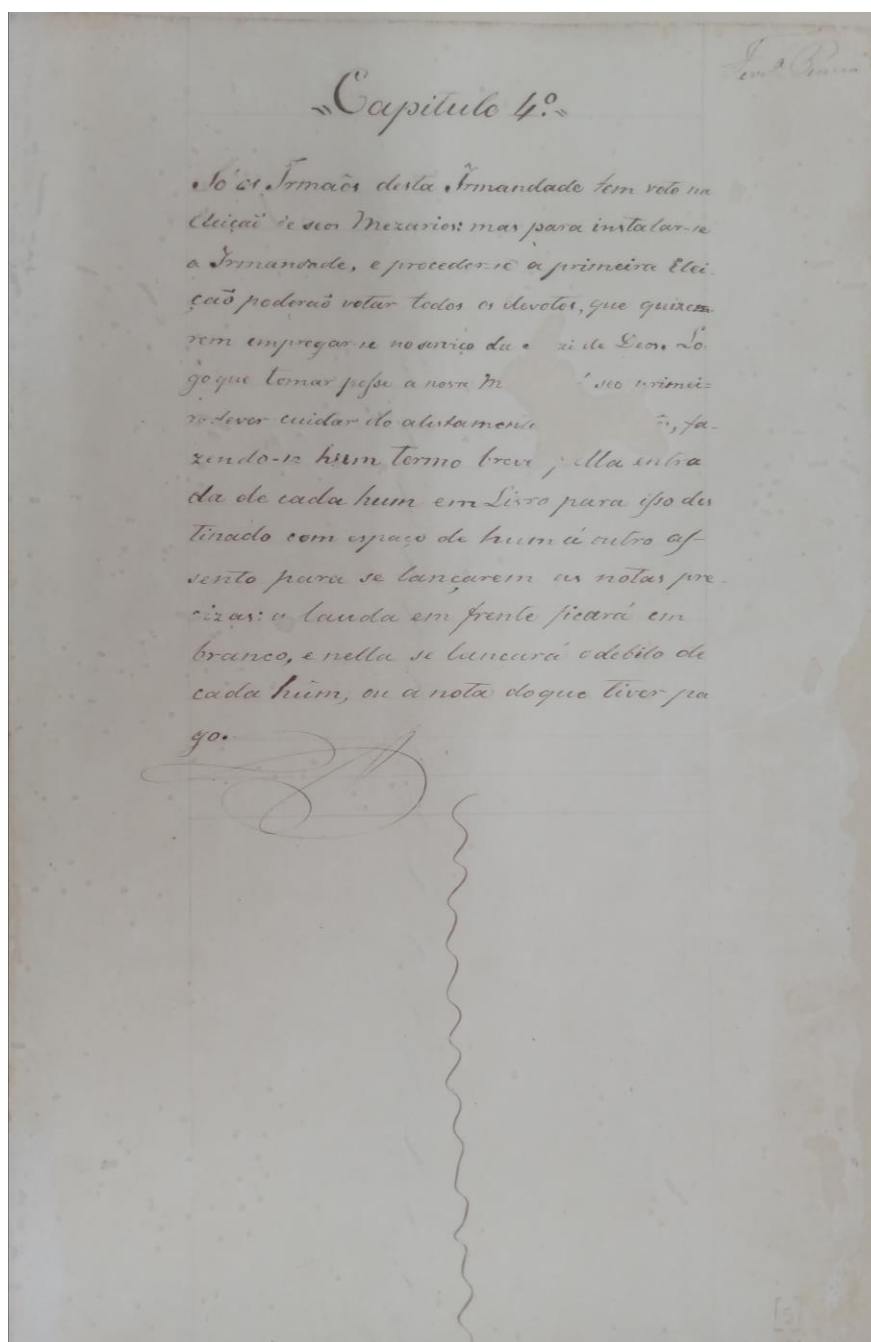 "Capitulo 4.º"
Só os Irmaõs desta Irmandade tem voto na
Eleiçaõ de seos Mezarios: mas para instalar-se
a Irmandade, e proceder-se á primeira Elei-
çaõ poderaõ votar todos os devotos, que quize
rem empregar-se no serviço da de Deos. Lo-
go que tomar posse a nova seo primei=
ro dever cuidar do alistamento fa-
zendo-se hum termo breve pella entra
da de cada hum em Livro para isso des
tinado com espaço de hum á outro as-
sento para se lançarem as notas pre-
cizas: a lauda em frente ficará em
branco, e nella se lancará o debito de
cada hum, ou a nota do que tiver pa
go.
[5]